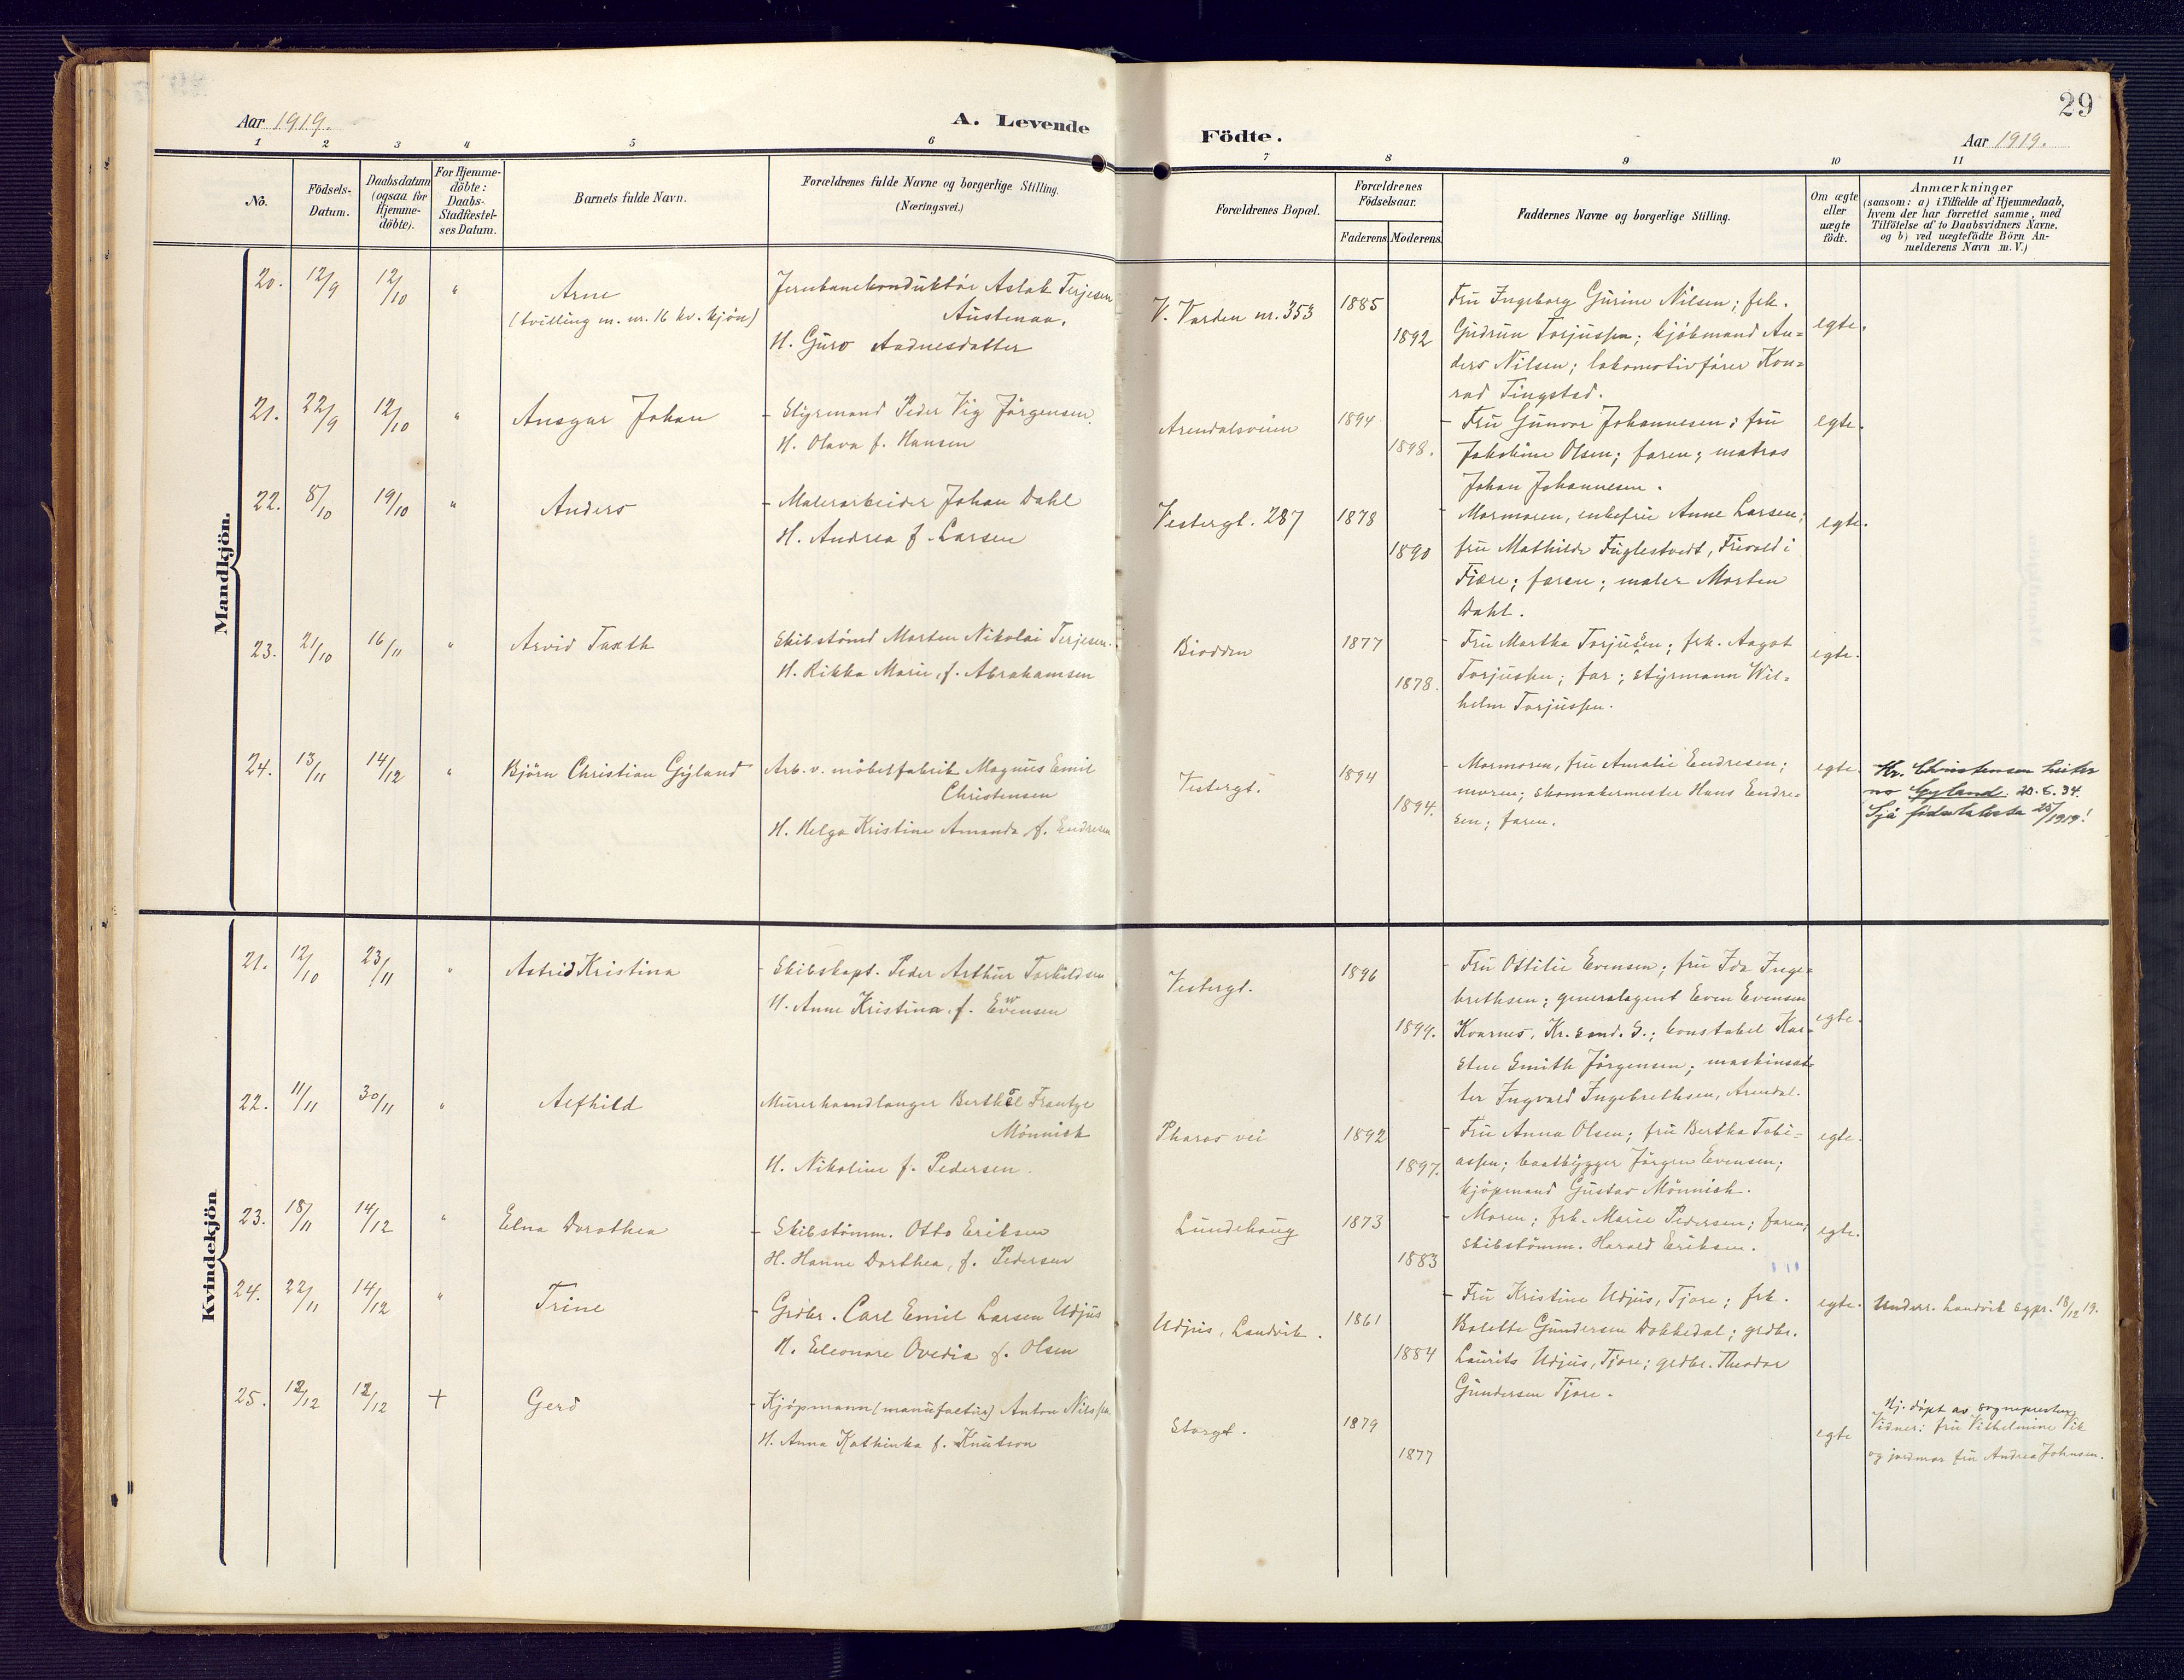 29
Aar 1919.
A. Levende Födte.
Aar 1919.
1 2 3 4 5 6 7 8 9 10 11
No.
Födsels-
Datum.
Daabsdatum
(ogsaa for
Hjemme-
döbte).
For Hjemme-
döbte:
Daabs-
Stadfæstel-
ses Datum.
Barnets fulde Navn.
Forældrenes fulde Navne og borgerlige Stilling.
(Næringsvei.)
Forældrenes Bopæl.
Forældrenes
Födselsaar.
Faderens Moderens
Faddernes Navne og borgerlige Stilling.
Om ægte
eller
uægte
födt.
Anmærkninger
(saasom: a) i Tilfælde af Hjemmedaab,
hvem der har forrettet samme, med
Tilföielse af to Daabsvidners Navne.
og b) ved uægtefödte Börn An-
melderens Navn m. V.)
Mandkjön.
20. 12/9 12/10 "
Arne
(tvilling m. nr. 16 kv. kjön)
Jernbanekonduktör Aslak Terjesen
Austenaa.
H. Guro Aadnesdatter
V. Varden nr. 353
1885
1892
Fru Ingeborg Gurine Nilsen; frk.
Gudrun Torjussen; kjöbmand An=
ders Nilsen; lokomotivförer Kon=
rad Tingstad.
egte.
21. 22/9 12/10 "
Ansgar Johan
- Styrmand Peder Vig Jörgensen.
H. Olava f. Hansen
Arendalsveien
1894
1898.
- Fru Gunvor Johannesen; fru
Jakobine Olsen; faren; matros
Johan Johannesen.
egte.
22. 8/10 19/10 "
Anders
- Malerarbeider Johan Dahl
H. Andrea f. Larsen
Vestergt. 287
1878
1890
- Mormoren, enkefru Anne Larsen;
fru Mathilde Fuglestvedt, Frivold i
Fjære; faren; maler Morten
Dahl.
egte.
23. 21/10 16/11 "
Arvid Taxth
Skibstömd Morten Nikolai Terjesen.
H. Rikka Marie, f. Abrahamsen
Biodden
1877
1878.
- Fru Martha Torjusen; frk. Aagot
Torjussen; far; styrmann Wil=
helm Torjussen.
egte.
24. 13/11 14/12 "
Björn Christian Gyland
Arb. v. möbelfabrik Magnus Emil
Christensen
H. Helga Kristine Amanda f. Endresen
Vestergt.
1894
1894.
- Mormoren, fru Amalie Endresen;
moren; skomakermester Hans Endre=
sen; faren.
egte
Kr. Christensen heiter
no Gyland. 20.6.34.
Sjå 25/1919!
Kvindekjön
21. 12/10 23/11 "
Astrid Kristina
- Skibskapt. Peder Arthur Torkildsen
H. Anne Kristina f. Evensen
Vestergt.
1896
1899.
- Fru Ottilie Evensen; fru Ida Inge=
brethsen; generalagent Even Evensen
Kvarnes, Kr. sand. S.; konstabel Kar=
sten Smith Jörgensen; maskinsæt=
ter Ingvald Ingebrethsen, Arendal.
egte.
22. 11/11 30/11 "
Alfhild
Murerhaandlanger Berthel Frantze
Mönnich
H. Nikoline f. Pedersen.
Pharos vei
1892
1897.
- Fru Anna Olsen; fru Bertha Tobi=
assen; baatbygger Jörgen Evensen;
kjöpmand Gustav Mönnich.
egte.
23. 18/11 14/12 "
Elna Dorothea
- Skibstömm. Otto Eriksen
H. Hanne Dorthea, f. Pedersen
Lundehaug
1873
1883
- Moren; frk. Marie Pedersen; faren;
skibstömm. Harald Eriksen.
egte.
24. 22/11 14/12 "
Trine
- Grdbr. Carl Emil Larsen Udjus
H. Eleonore Ovedia f. Olsen
Udjus, Landvik.
1861
1884
- Fru Kristine Udjus, Tjore; frk.
Bolette Gundersen Dokkedal; grdbr.
Laurits Udjus, Tjore; grdbr. Theodor
Gundersen Tjore.
egte.
Underr. Landvik sgpr. 18/12 19.
25. 12/12 12/12 +
Gerd
- Kjöpmann (manufaktur) Anton Nilssen.
H. Anna Kathinka f. Knutson
Storgt.
1879
1877
egte
Hj. döpt av sognepresten
Vidner: fru Vilhelmine Vik
og jordmor fru Andrea Johnsen.